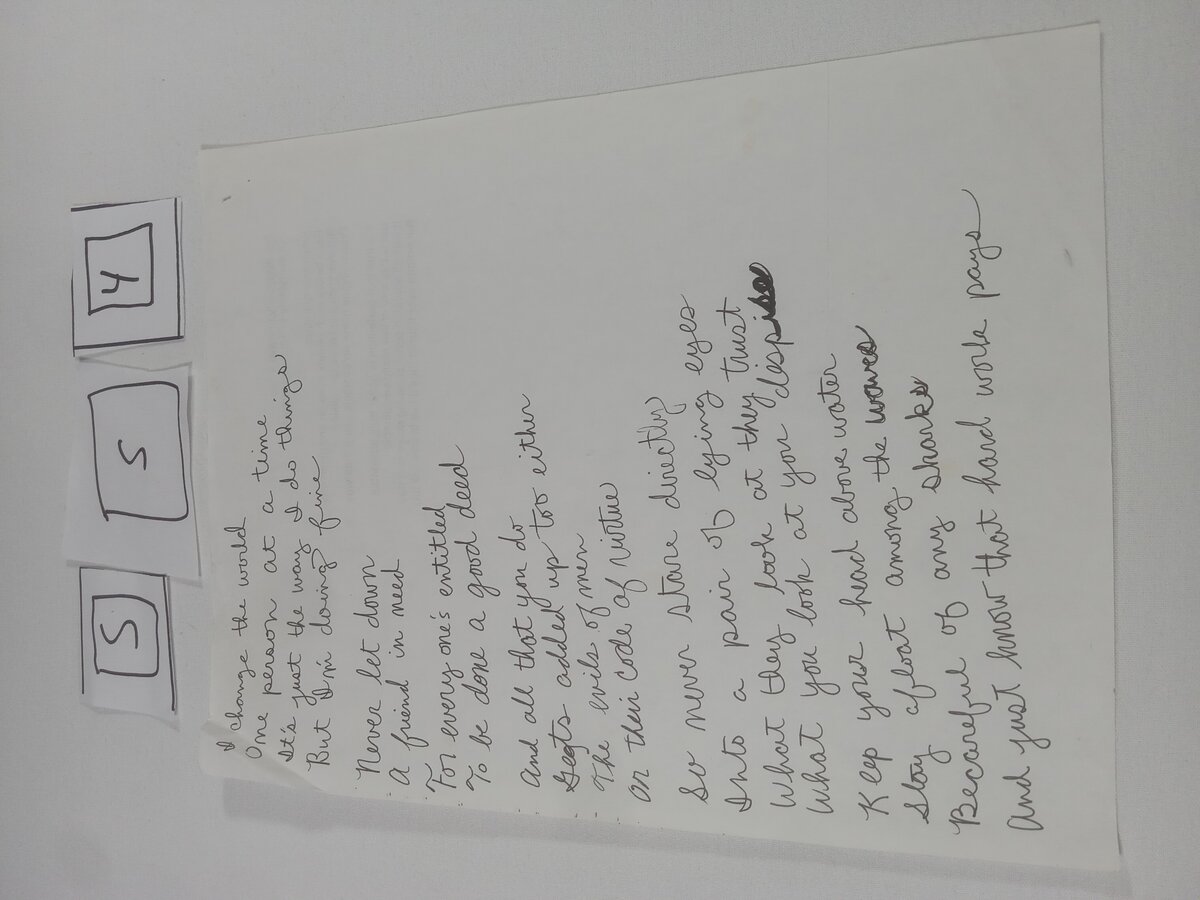 5 5 4
I change the world
One person at a time
It's just the way I do things
But I'm doing fine
Never let down
A friend in need
For every one's entitled
To be done a good deed
And all that you do
Gegts added up too either
The evils of men
Or their code of virtue
So never stare directly
Into a pair of lying eyes
What they look at they trust
What you look at you despise
Keep your head above water
Stay afloat among the waves
Becareful of any sharks
And just know that hard work pays